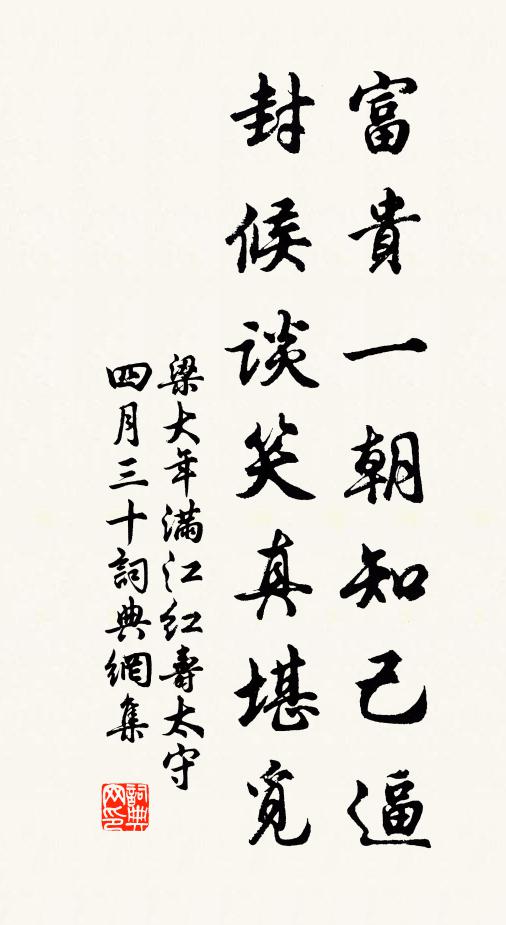 富貴一朝知己逼
封候談笑真堪覓
梁大年滿江红壽太守
四月三十詞典網集
詞典网印